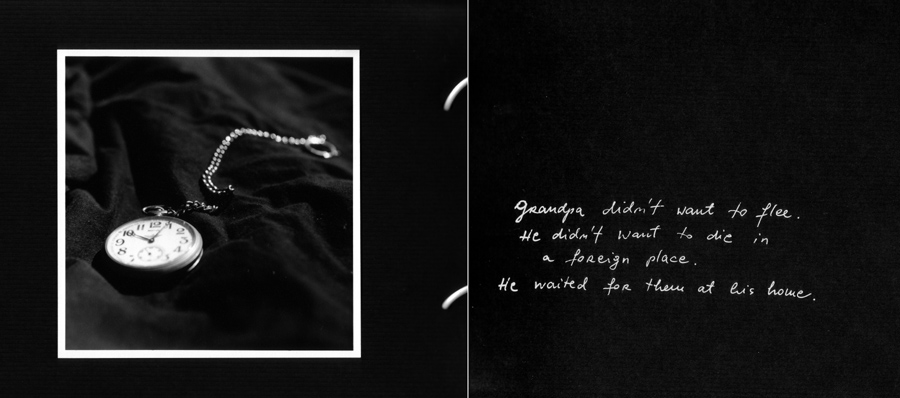 Grandpa didn't want to flee.
He didn't want to die in
a foreign place.
He waited for them at his home.